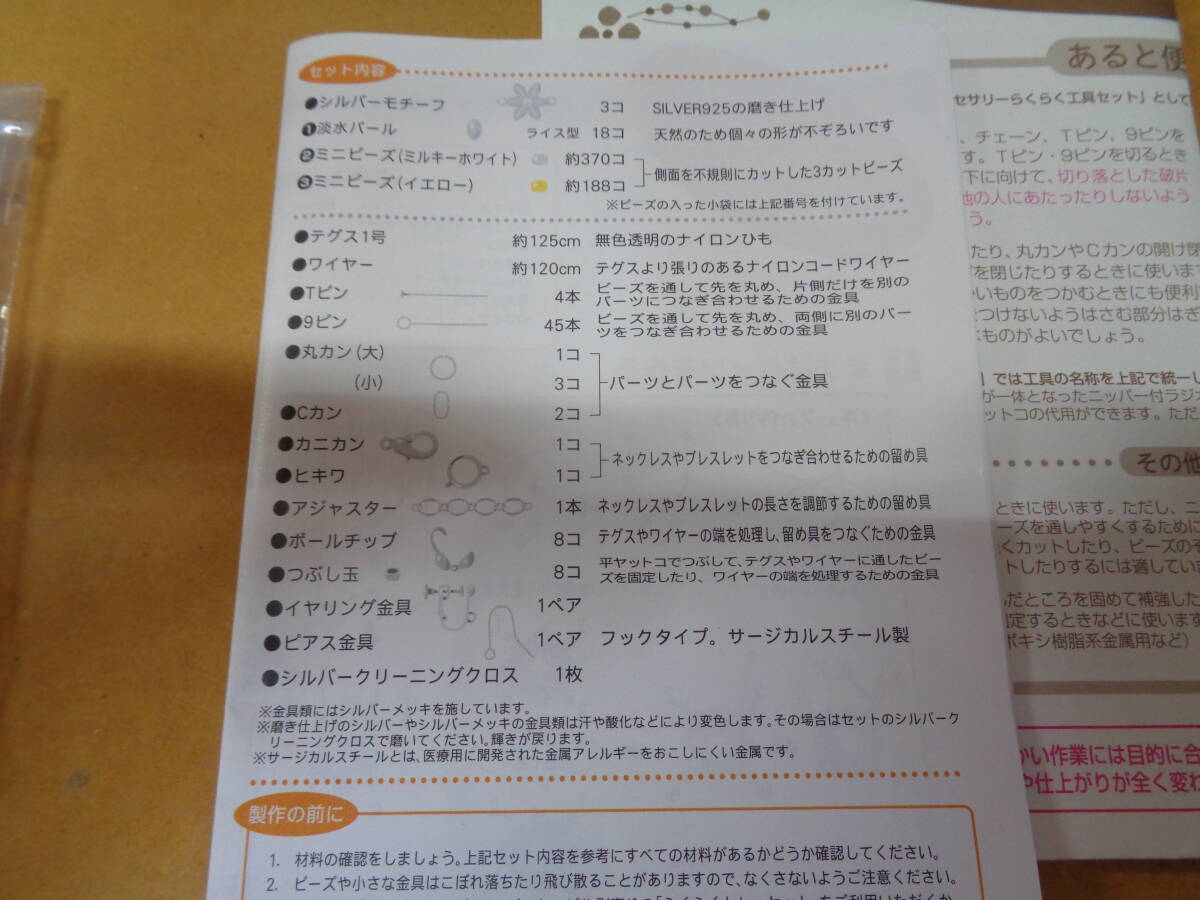 セット内容
●シルバーモチーフ 3コ SILVER925の磨き仕上げ
❶淡水パール ライス型 18コ 天然のため個々の形が不ぞろいです
❷ミニビーズ(ミルキーホワイト) 約370コ
❸ミニビーズ(イエロー) 約188コ
側面を不規則にカットした3カットビーズ
※ビーズの入った小袋には上記番号を付けています。
●テグス1号 約125cm 無色透明のナイロンひも
●ワイヤー 約120cm テグスより張りのあるナイロンコードワイヤー
●Tピン 4本 ビーズを通して先を丸め、片側だけを別の
パーツにつなぎ合わせるための金具
●9ピン 45本 ビーズを通して先を丸め、両側に別のパー
ツをつなぎ合わせるための金具
●丸カン(大) 1コ
(小) 3コ パーツとパーツをつなぐ金具
●Cカン 2コ
●カニカン 1コ
ネックレスやブレスレットをつなぎ合わせるための留め具
●ヒキワ 1コ
●アジャスター 1本 ネックレスやブレスレットの長さを調節するための留め具
●ボールチップ 8コ テグスやワイヤーの端を処理し、留め具をつなぐための金具
●つぶし玉 8コ 平ヤットコでつぶして、テグスやワイヤーに通したビー
ズを固定したり、ワイヤーの端を処理するための金具
●イヤリング金具 1ペア
●ピアス金具 1ペア フックタイプ。サージカルスチール製
●シルバークリーニングクロス 1枚
※金具類にはシルバーメッキを施しています。
※磨き仕上げのシルバーやシルバーメッキの金具類は汗や酸化などにより変色します。その場合はセットのシルバーク
リーニングクロスで磨いてください。輝きが戻ります。
※サージカルスチールとは、医療用に開発された金属アレルギーをおこしにくい金属です。
製作の前に
1. 材料の確認をしましょう。上記セット内容を参考にすべての材料があるかどうか確認してください。
2. ビーズや小さな金具はこぼれ落ちたり飛び散ることがありますので、なくさないようご注意ください。
あると便
セサリーらくらく工具セット」として
、チェーン、Tピン、9ピンを
す。Tピン・9ピンを切るとき
下に向けて、切り落とした破片
他の人にあたったりしないよう
う。
たり、丸カンやCカンの開け閉
を閉じたりするときに使います
いものをつかむときにも便利
つけないようはさむ部分はぎ
ものがよいでしょう。
」では工具の名称を上記で統一し
が一体となったニッパー付ラジオ
ットコの代用ができます。ただ
その他
ときに使います。ただし、ニ
ーズを通しやすくするために
くカットしたり、ビーズのそ
トしたりするには適してい
だところを固めて補強した
定するときなどに使います
ポキシ樹脂系金属用など)
かい作業には目的に合
や仕上がりが全く変わ